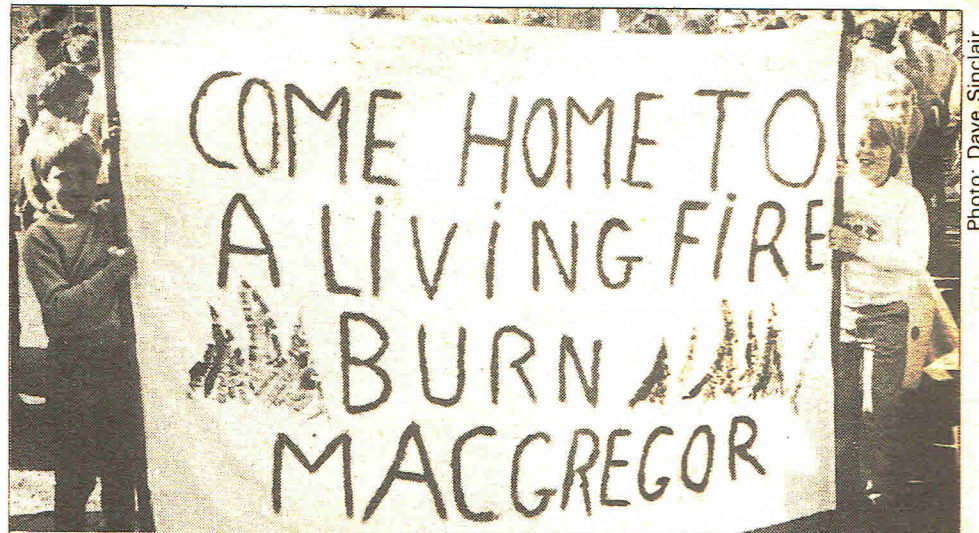 COME HOME TO
A LiViNG FiRE
BURN
MACGREGOR
Photo: Dave Sinclair